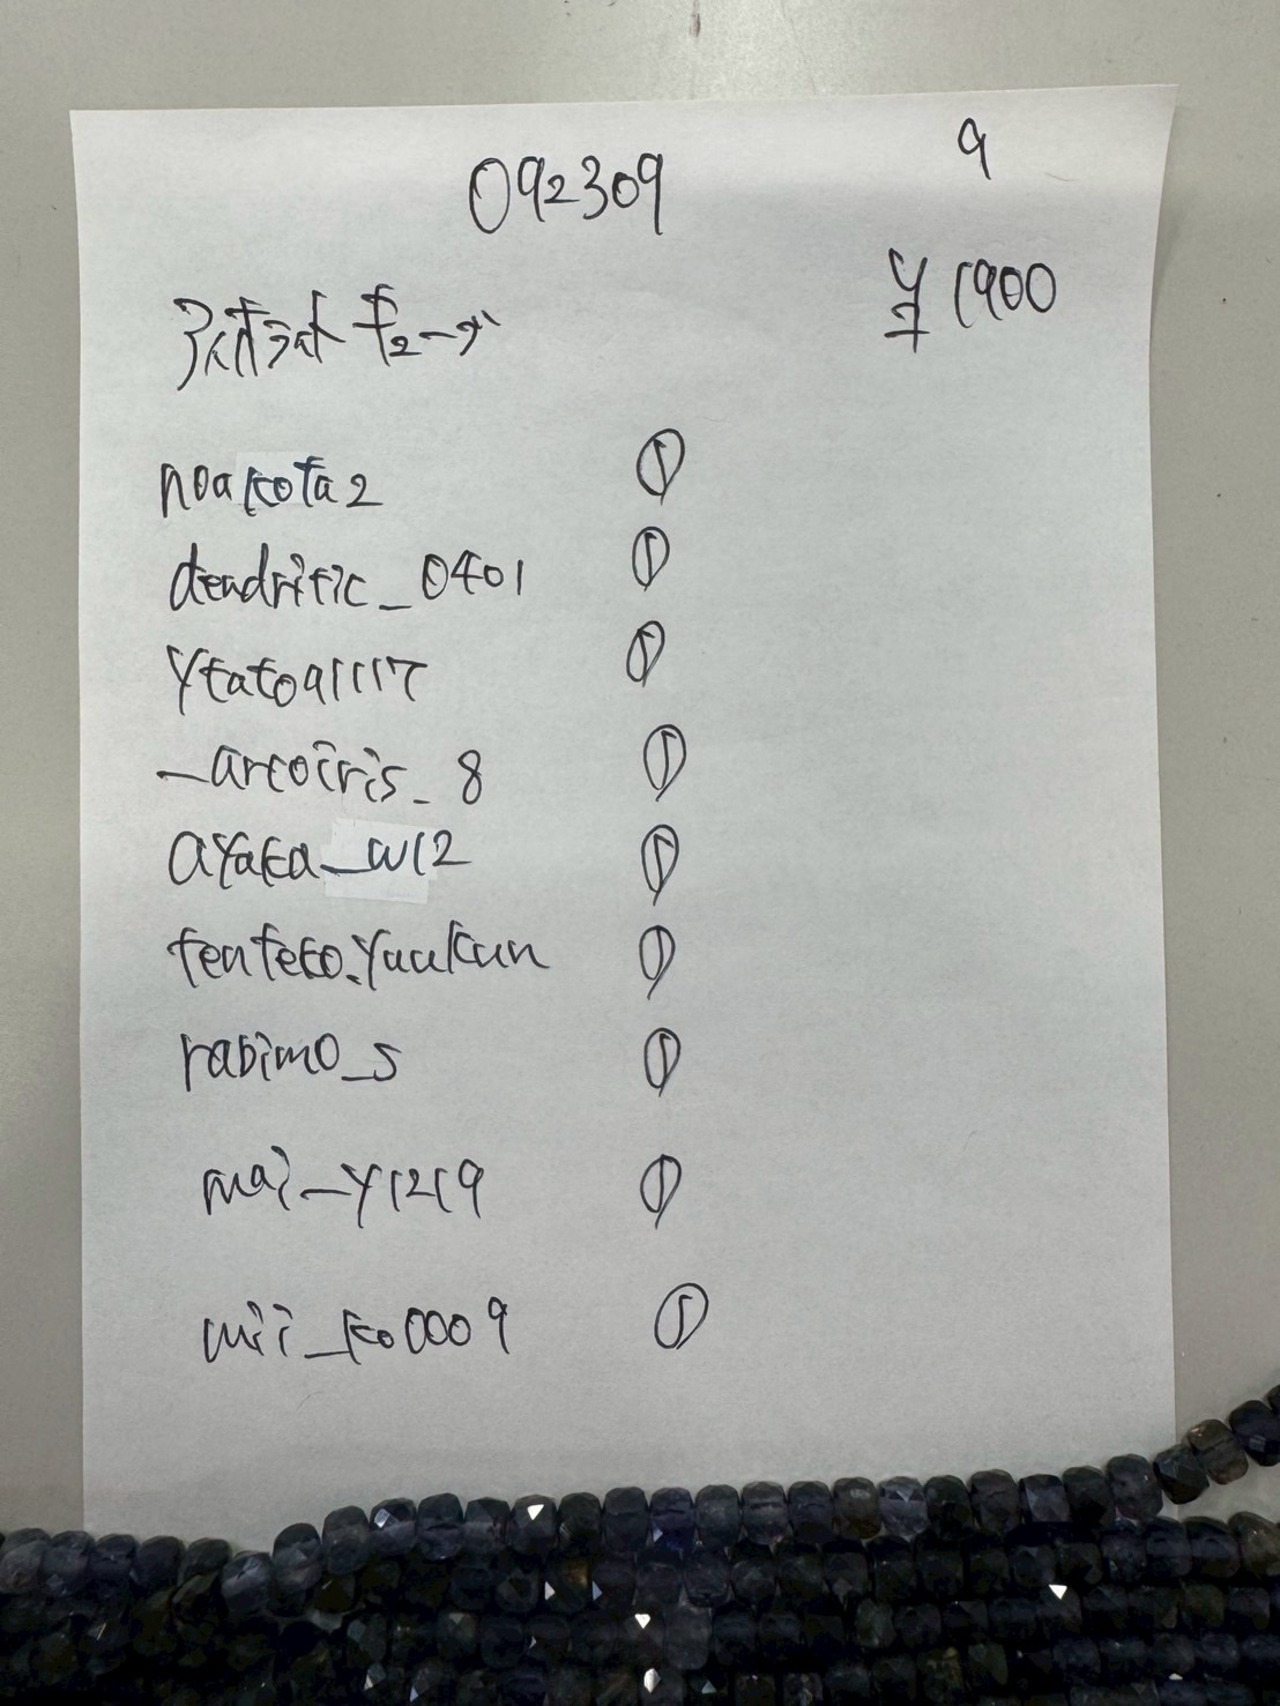 092309
9
¥1900
アイオライト キューブ
noakota2
①
dendritic_0401
①
ytato91117
①
_arcoiris_8
①
ayaka_w12
①
tenteko.yuukun
①
rabimo_s
①
mai_y1219
①
mii_ko0009
①